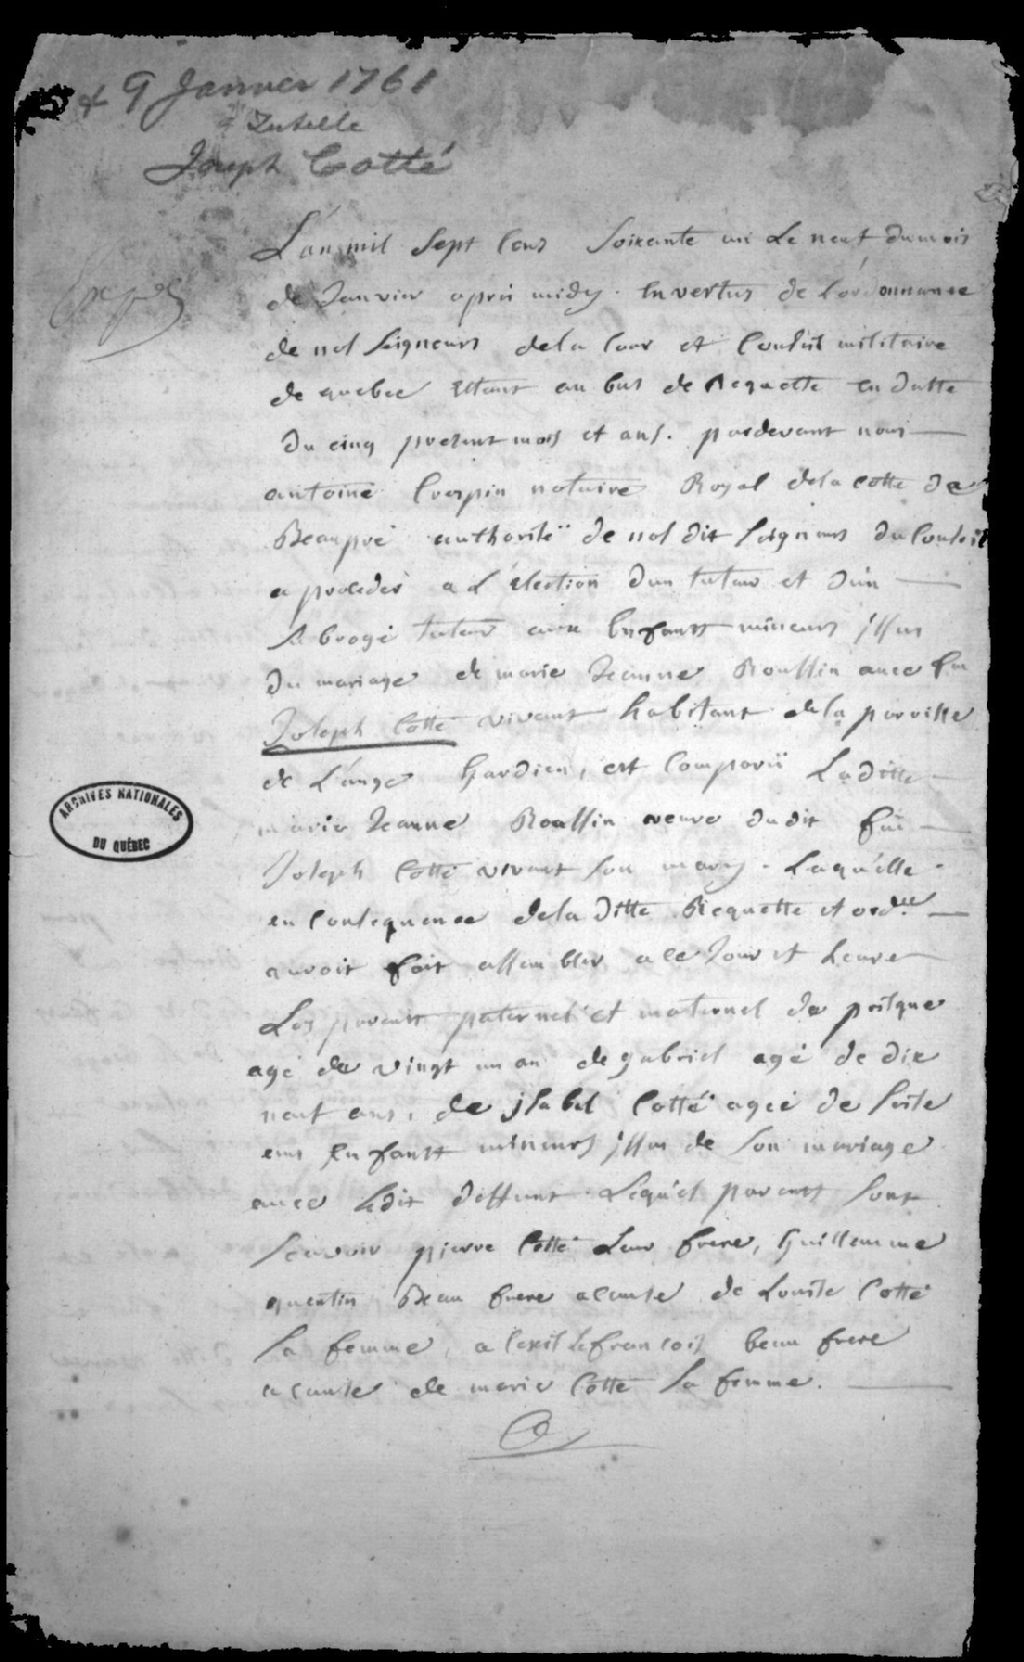 9 Janvier 1761
Tutelle
Joseph Cotté
L'an mil sept Cens Soixante un Le neuf du mois
de Janvier apres midy. En vertus de L'ordonnance
de nos Seigneurs de la Cour et Conseil militaire
de quebec Estant au bas de Requette en datte
du cinq present mois et ans. pardevant nous
antoine Crespin notaire Royal de la Cotte de
Beaupré authorisé de nos dit Seigneurs du Conseil
a proceder a L'Election d'un tuteur et d'un
Subrogé tuteur aux Enfants mineurs issus
du mariage de marie Jeanne Roussin avec feu
Joseph Cotté vivant habitant de la paroisse
de L'ange Gardien, est Comparü Laditte
marie Jeanne Roussin veuve dudit feü
Joseph Cotté vivant Son mary. Laquelle
en Consequence de la ditte Requette et ord.ce
auroit fait assembler a ce Jour et heure
Les parents paternel et maternel de prisque
agé de vingt un an de gabriel agé de dix
neuf ans, de jsabel Cotté agée de Seise
ans Enfants mineurs issus de Son mariage
avec Ledit deffunt. Lesquels parents Sont
Scavoir pierre Cotté Leur frere, Guillemme
quentin Beau frere acause de Louise Cotté
Sa femme, alexit Lefrancois beau frere
acause de marie Cotté Sa femme.
ARCHIVES NATIONALES
DU QUÉBEC